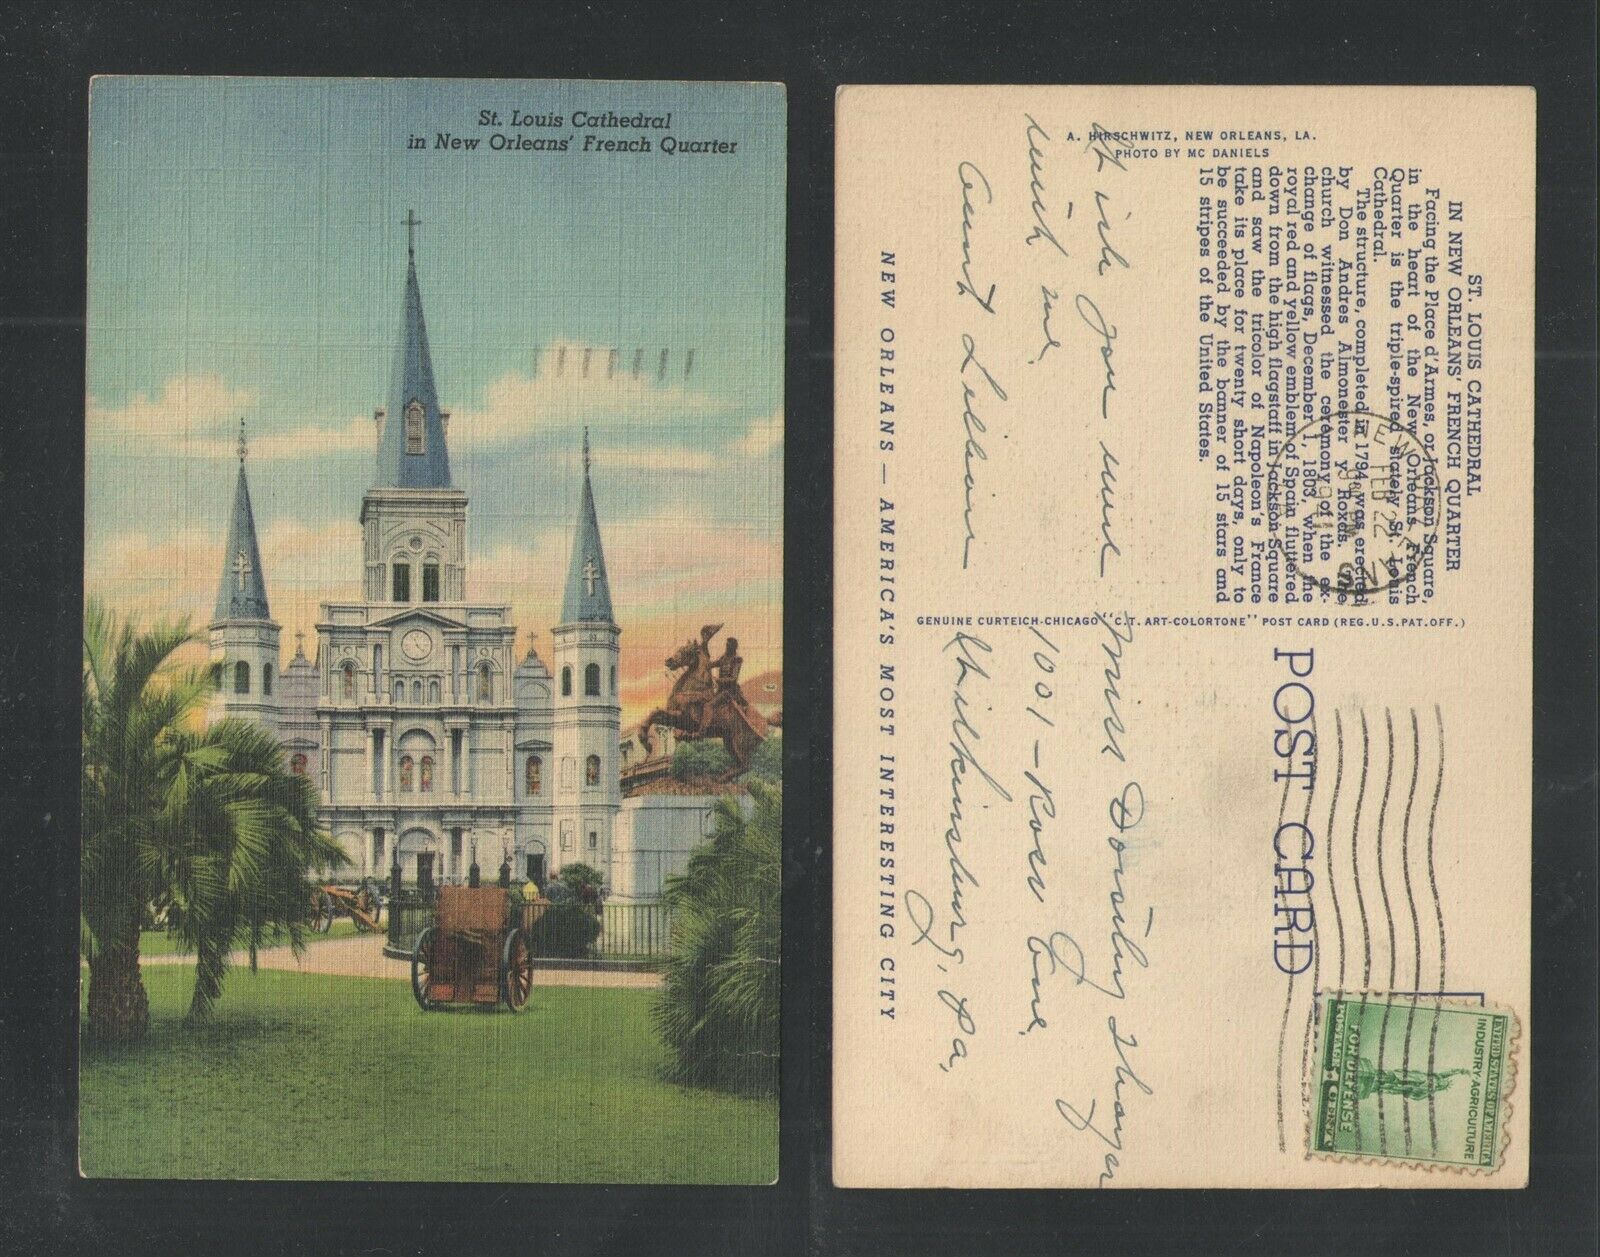 St. Louis Cathedral
in New Orleans' French Quarter
A. HIRSCHWITZ, NEW ORLEANS, LA.
PHOTO BY MC DANIELS
ST. LOUIS CATHEDRAL
IN NEW ORLEANS' FRENCH QUARTER
Facing the Place d'Armes, or Jackson Square,
in the heart of the New Orleans French
Quarter is the triple-spired stately St. Louis
Cathedral.
The structure, completed in 1794 was erected
by Don Andres Almonester y Roxas. The
church witnessed the ceremony of the ex-
change of flags, December 1, 1803, when the
royal red and yellow emblem of Spain fluttered
down from the high flagstaff in Jackson Square
and saw the tricolor of Napoleon's France
take its place for twenty short days, only to
be succeeded by the banner of 15 stars and
15 stripes of the United States.
you were
with me.
Aunt Lillian
NEW ORLEANS — AMERICA'S MOST INTERESTING CITY
GENUINE CURTEICH-CHICAGO "C.T. ART-COLORTONE" POST CARD (REG. U.S. PAT. OFF.)
POST CARD
FEB 22
UNITED STATES OF AMERICA
INDUSTRY·AGRICULTURE
FOR DEFENSE
POSTAGE
Miss Dorothy Thayer
1001 - Ross Ave,
Wilkinsburg, Pa,